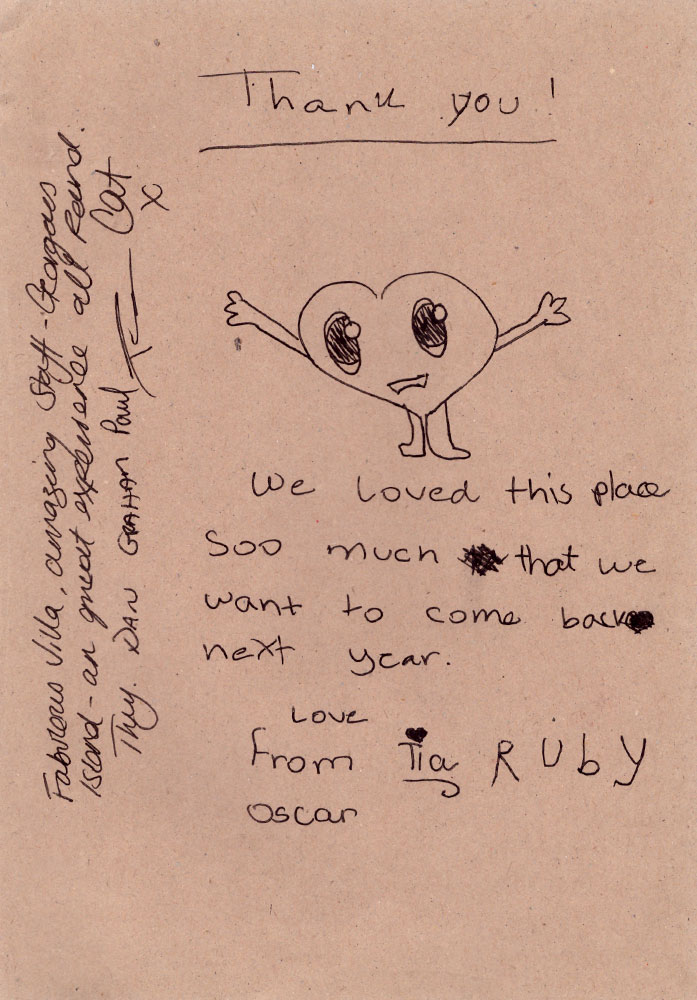 Thank you!
We loved this place
Soo much that we
want to come back
next year.
Love
from Tia Ruby
oscar
Fabulous Villa, amazing Staff - Gorgeous
Island - an great experience all Round.
DAN GRAHAM Paul Cat
x